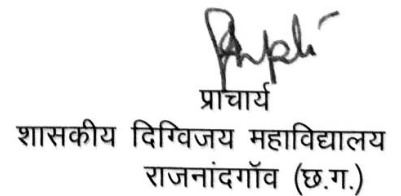 प्राचार्य
शासकीय दिग्विजय महाविद्यालय
राजनांदगॉव (छ.ग.)